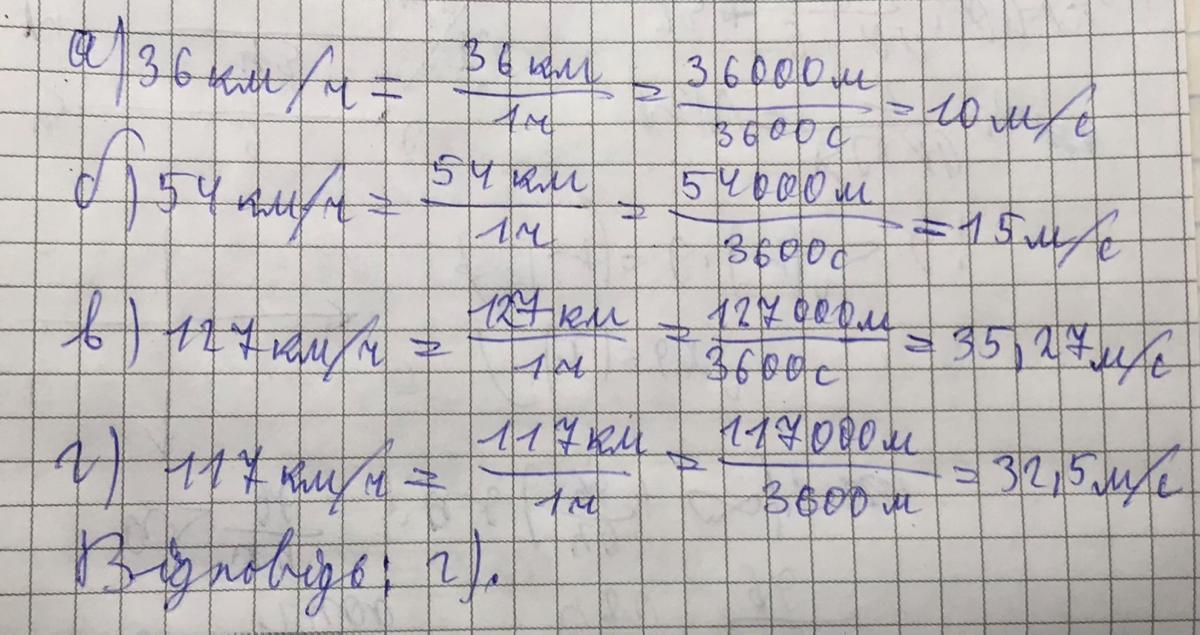 а) 36 км/ч = 36 км / 1ч = 36000м / 3600с = 10 м/с
б) 54 км/ч = 54 км / 1ч = 54000м / 3600с = 15 м/с
в) 127 км/ч = 127 км / 1ч = 127000м / 3600с = 35,27 м/с
г) 117 км/ч = 117 км / 1ч = 117000м / 3600м = 32,5 м/с
Відповідь: г).